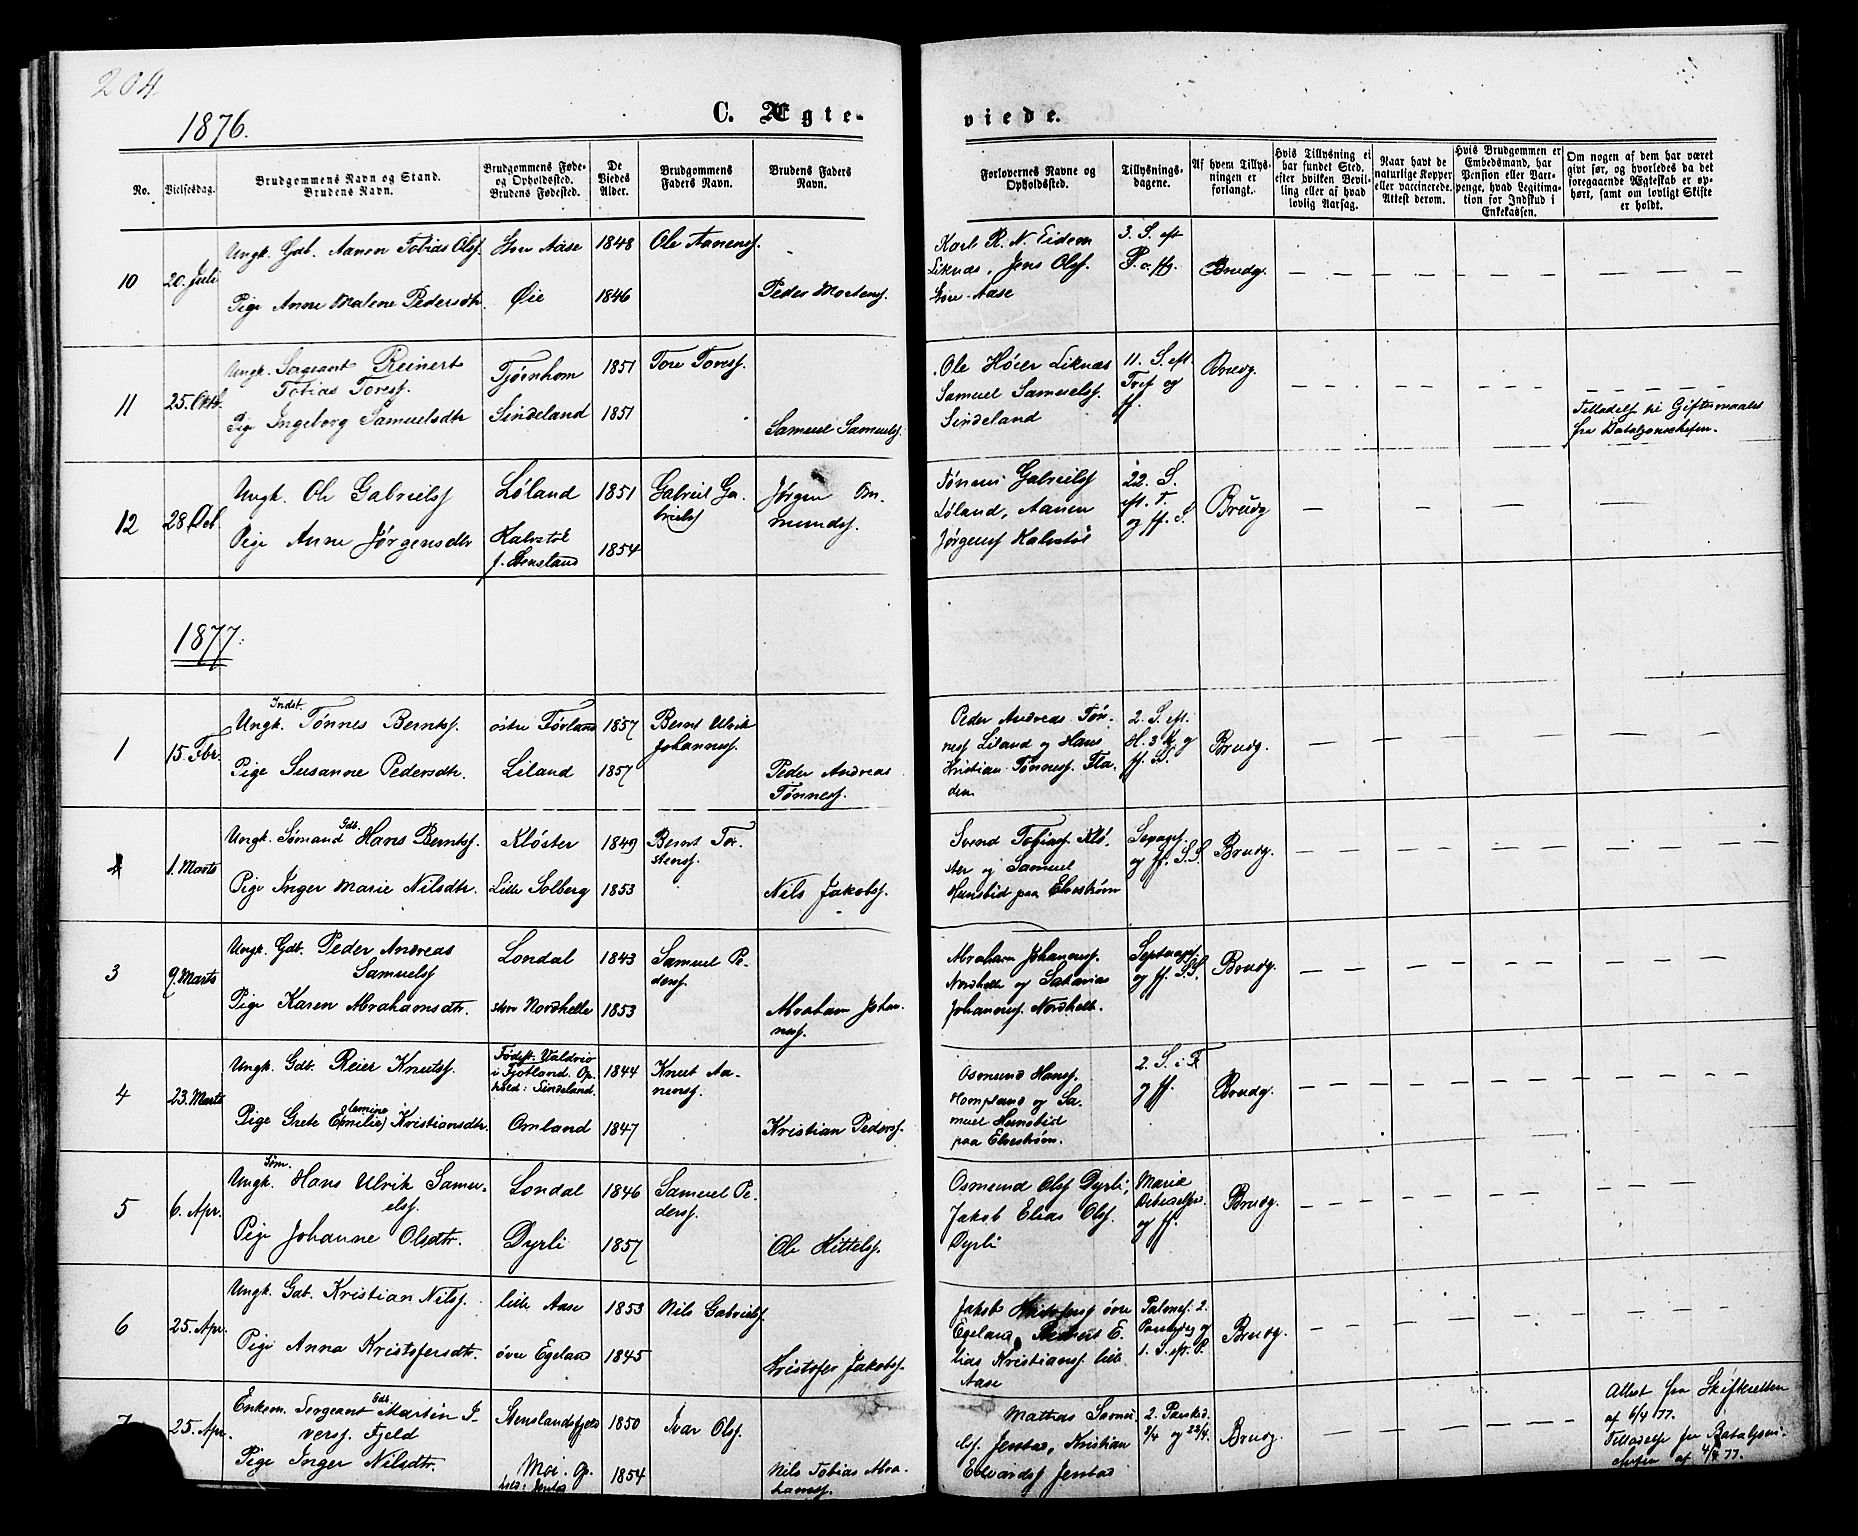 204
1876.
C. Ægte-
viede.
No.
Vielsesdag.
Brudgommens Navn og Stand.
Brudens Navn.
Brudgommens Føde-
og Opholdssted.
Brudens Fødested.
De
Viedes
Alder.
Brudgommens
Faders Navn.
Brudens Faders
Navn.
Forlovernes Navne og
Opholdssted.
Tillysnings-
dagene.
Af hvem Tillys-
ningen er
forlangt.
Hvis Tillysning ei
har fundet Sted,
efter hvilken Bevil-
ling eller af hvad
lovlig Aarsag.
Naar havt de
naturlige Kopper
eller vaccinerede.
Attest derom.
Hvis Brudgommen er
Embedsmand, har
Pension eller Vart-
penge, hvad Legitima-
tion for Indskud i
Enkekassen.
Om nogen af dem har været
givt før, og hvorledes da det
foregaaende Ægteskab er op-
hørt, samt om lovligt Skifte
er holdt.
10
20. Juli
Ungk. Gdb. Aanen Tobias Olsf.
Pige Anne Malene Pedersdtr.
Aase
Øie
1848
1846
Ole Aanensf.
Peder Mortensf.
Karl R. N. Eidem
Liknes, Jens Olsf.
Aase
3. S. eft
P. o. ff.
Brudg.
11
25. Oktb.
Ungk. Sergeant Reinert
Tobias Toresf.
Pige Ingeborg Samuelsdtr
Tjørnhom
Sindeland
1851
1851
Tore Toresf.
Samuel Samuelsf.
Ole Høier Liknes
Samuel Samuelsf.
Sindeland
11. S. eft.
Tref og
ff.
Brudg.
Tilladelse til Giftermaalet
fra Bataljonschefen.
12
28 Dcb.
Ungk. Ole Gabrielsf
Pige Anne Jørgensdtr
Løland
Kalvstøl
f. Stensland
1851
1854
Gabriel Ga-
brielsf
Jørgen Om-
mundsf.
Tønnes Gabrielsf
Løland, Aanen
Jørgensf Kalvstøl
22. S.
eft. T.
og ff. S.
Brudg
1877.
1
15. Febr.
Indst.
Ungk. Tønnes Berntsf.
Pige Susanne Pedersdtr.
østre Førland
Liland
1857
1857
Bernt Ulrik
Johannesf.
Peder Andreas
Tønnesf.
Peder Andreas Tøn-
nesf Liland og Hans
Kristian Tønnesf. Fla-
den
2. S. eft.
H. 3 K. og
ff. S.
Brudg.
1. Marts
Ungk. Sømand Gdb. Hans Berntsf.
Pige Inger Marie Nilsdtr.
Kløster
Lille Solberg
1849
1853
Bernt Tor-
stensf.
Nils Jakobsf.
Svend Tobiasf. Klø-
ster og Samuel
Hunsbid paa Elvestrøm
og ff. S.S.
Brudg.
3
9. Marts
Ungk. Gdb. Peder Andreas
Samuelsf
Pige Karen Abrahamsdtr.
Londal
store Nordhelle
1843
1853
Samuel Pe-
dersf.
Abraham Johan-
nesf.
Abraham Johannesf.
Nordhelle og Sakarias
Johannesf. Nordhelle.
Septuagf
og ff. S.S.
Brudg.
4
23. Marts
Ungk. Gdb. Reier Knutsf.
Pige Grete (Emilie) Olemine Kristiansdtr.
Fødest: Valdrio
i Fjotland. Op-
hold: Sindeland.
Omland
1844
1847
Knut Aa-
nensf.
Kristian Pedersf.
Osmund Hansf.
Homsland og Sa-
muel Hunsbid
paa Elvestrøm.
2. S. i F.
og ff.
Brudg.
5
6. Apr.
Søm.
Ungk. Hans Ulrik Samu-
elsf.
Pige Johanne Olsdtr.
Londal
Dyrli
1846
1857
Samuel Pe-
dersf.
Ole Kittelsf.
Osmund Olsf Dyrli,
Jakob Elias Olsf.
Dyrli
Mariæ
Bebudelse
og ff.
Brudg.
6
25. Apr.
Ungk. Gdb. Kristian Nilsf.
Pige Anna Kristofersdtr.
lille Aase
øvre Egeland
1853
1845
Nils Gabrielsf
Kristofer Jakobsf.
Jakob Kristofersf øvre
Egeland, E-
lias Kristiansf. lille
Aase
Palmes. 2.
Paaskedag og
1. S. eft. P.
Brudg.
7
25. Apr.
Enkem. Sergeant Gdb. Martin I-
versf. Fjeld
Pige Inger Nilsdtr.
Stenslandsfjeld
Moi. Op-
hold: Jerstad
1850
1854
Ivar Olsf.
Nils Tobias Abra-
hamsf.
Mathias Samu-
elsf. Jerstad, Kristian
Edvardsf Jerstad
2. Paasked.
2/4 og 22/4.
Brudg.
Attest fra Skifteretten
af 6/4 77.
Tilladelse fra Bataljons-
chefen af 4/4 77.